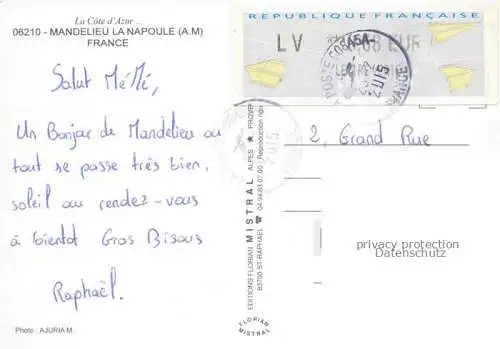 La Côte d'Azur ...
06210 - MANDELIEU LA NAPOULE (A.M)
FRANCE
Salut MéMé,
Un Bonjour de Mandelieu ou
tout se passe très bien,
soleil au rendez-vous
à bientôt Gros Bisous
Raphaël.
Photo : AJURIA M.
EDITIONS FLORIAN MISTRAL ALPES ★ PROVENCE
83700 ST-RAPHAËL ☎ 04.94.83.07.00 Reproduction
FLORIAN
MISTRAL
REPUBLIQUE FRANÇAISE
LV EUR
2015
2015
2, Grand Rue
privacy protection
Datenschutz